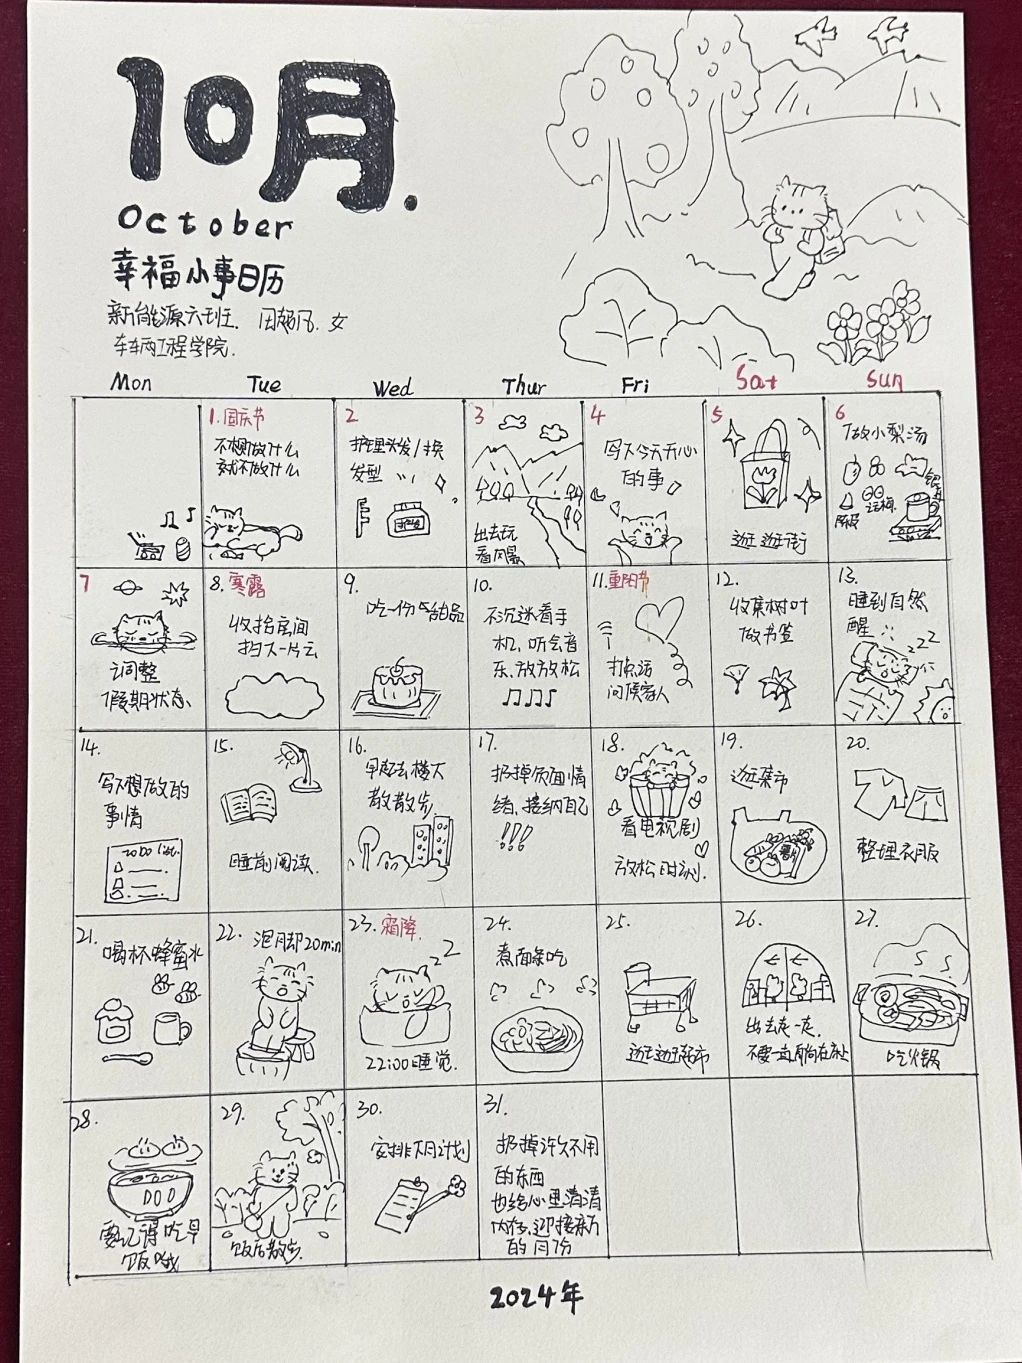 10月.
October
幸福小事日历
新能源六班. 女
车辆工程学院.
Mon Tue Wed Thur Fri Sat Sun
1.国庆节
不想做什么
就不做什么
2
护理头发/换
发型
3
出去玩
看风景
4
写下今天开心
的事
5
逛逛街
6
做小梨汤
7
调整
假期状态
8.寒露
收拾房间
扫下一片云
9.
吃一份甜品
10.
不沉迷看手
机,听会音
乐,放放松
11.重阳节
打电话
问候家人
12.
收集树叶
做书签
13.
睡到自然
醒
zzz
14.
写下想做的
事情
to Do list.
15.
睡前阅读.
16.
早起去楼下
散散步,
17.
扔掉负面情
绪,接纳自己
!!!
18.
看电视剧
放松时刻.
19.
逛逛菜市
20.
整理衣服
21.
喝杯蜂蜜水
22.
泡脚20min
23.霜降.
zzz
22:00睡觉.
24.
煮面条吃
25.
逛逛超市
26.
出去走一走.
不要一直躺在床上
27.
吃火锅
28.
要记得吃早
饭哦
29.
饭后散步.
30.
安排下月计划
31.
扔掉许久不用
的东西
也给心里清清
内存,迎接新
的月份
2024年